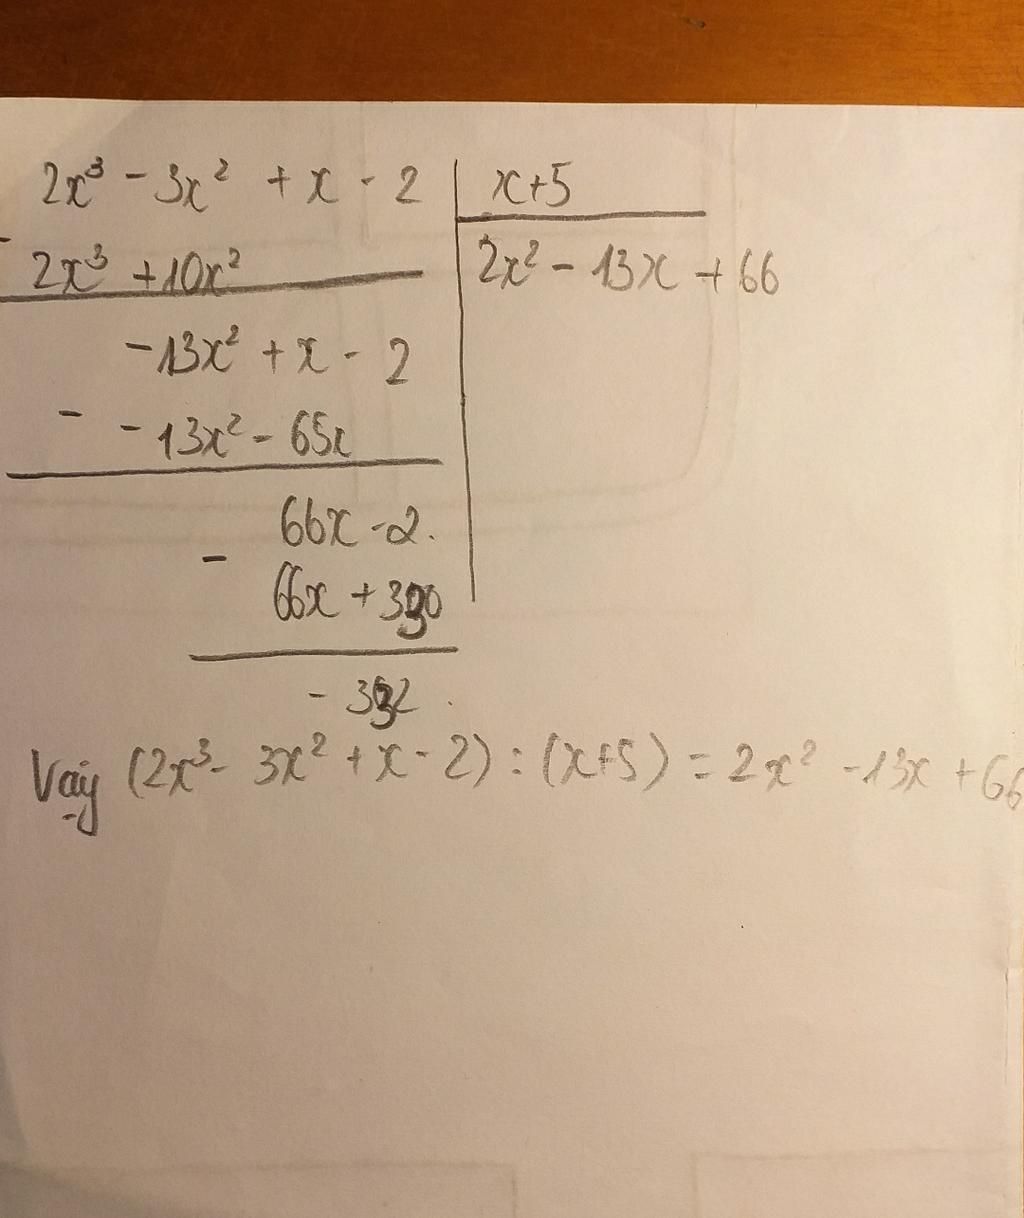 2x³ - 3x² + x - 2 | x+5
- 2x³ + 10x² | 2x² - 13x + 66
-13x² + x - 2
- -13x² - 65x
66x - 2.
-
66x + 330
- 332.
Vậy (2x³ - 3x² + x - 2) : (x+5) = 2x² - 13x + 66